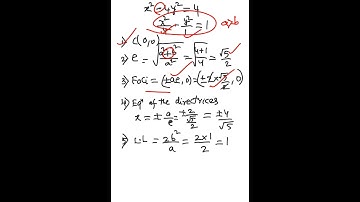 x² - 4y² = 4
x²/4 - y²/1 = 1 a>b
1) C(0,0)
2) e = √((a²+b²)/a²) = √((4+1)/4) = √5/2
3) Foci = (±ae, 0) = (±2×√5/2, 0)
4) Eqⁿ of the directrices
x = ± a/e = ±2/(√5/2) = ±4/√5
5) L.L = 2b²/a = 2×1/2 = 1